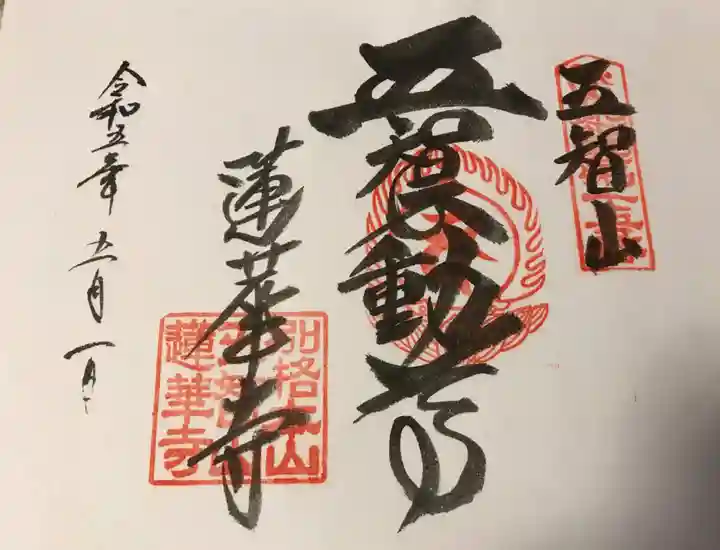 五智山
五智不動尊
蓮華寺
別格本山
五智山
蓮華寺
令和五年 五月一日